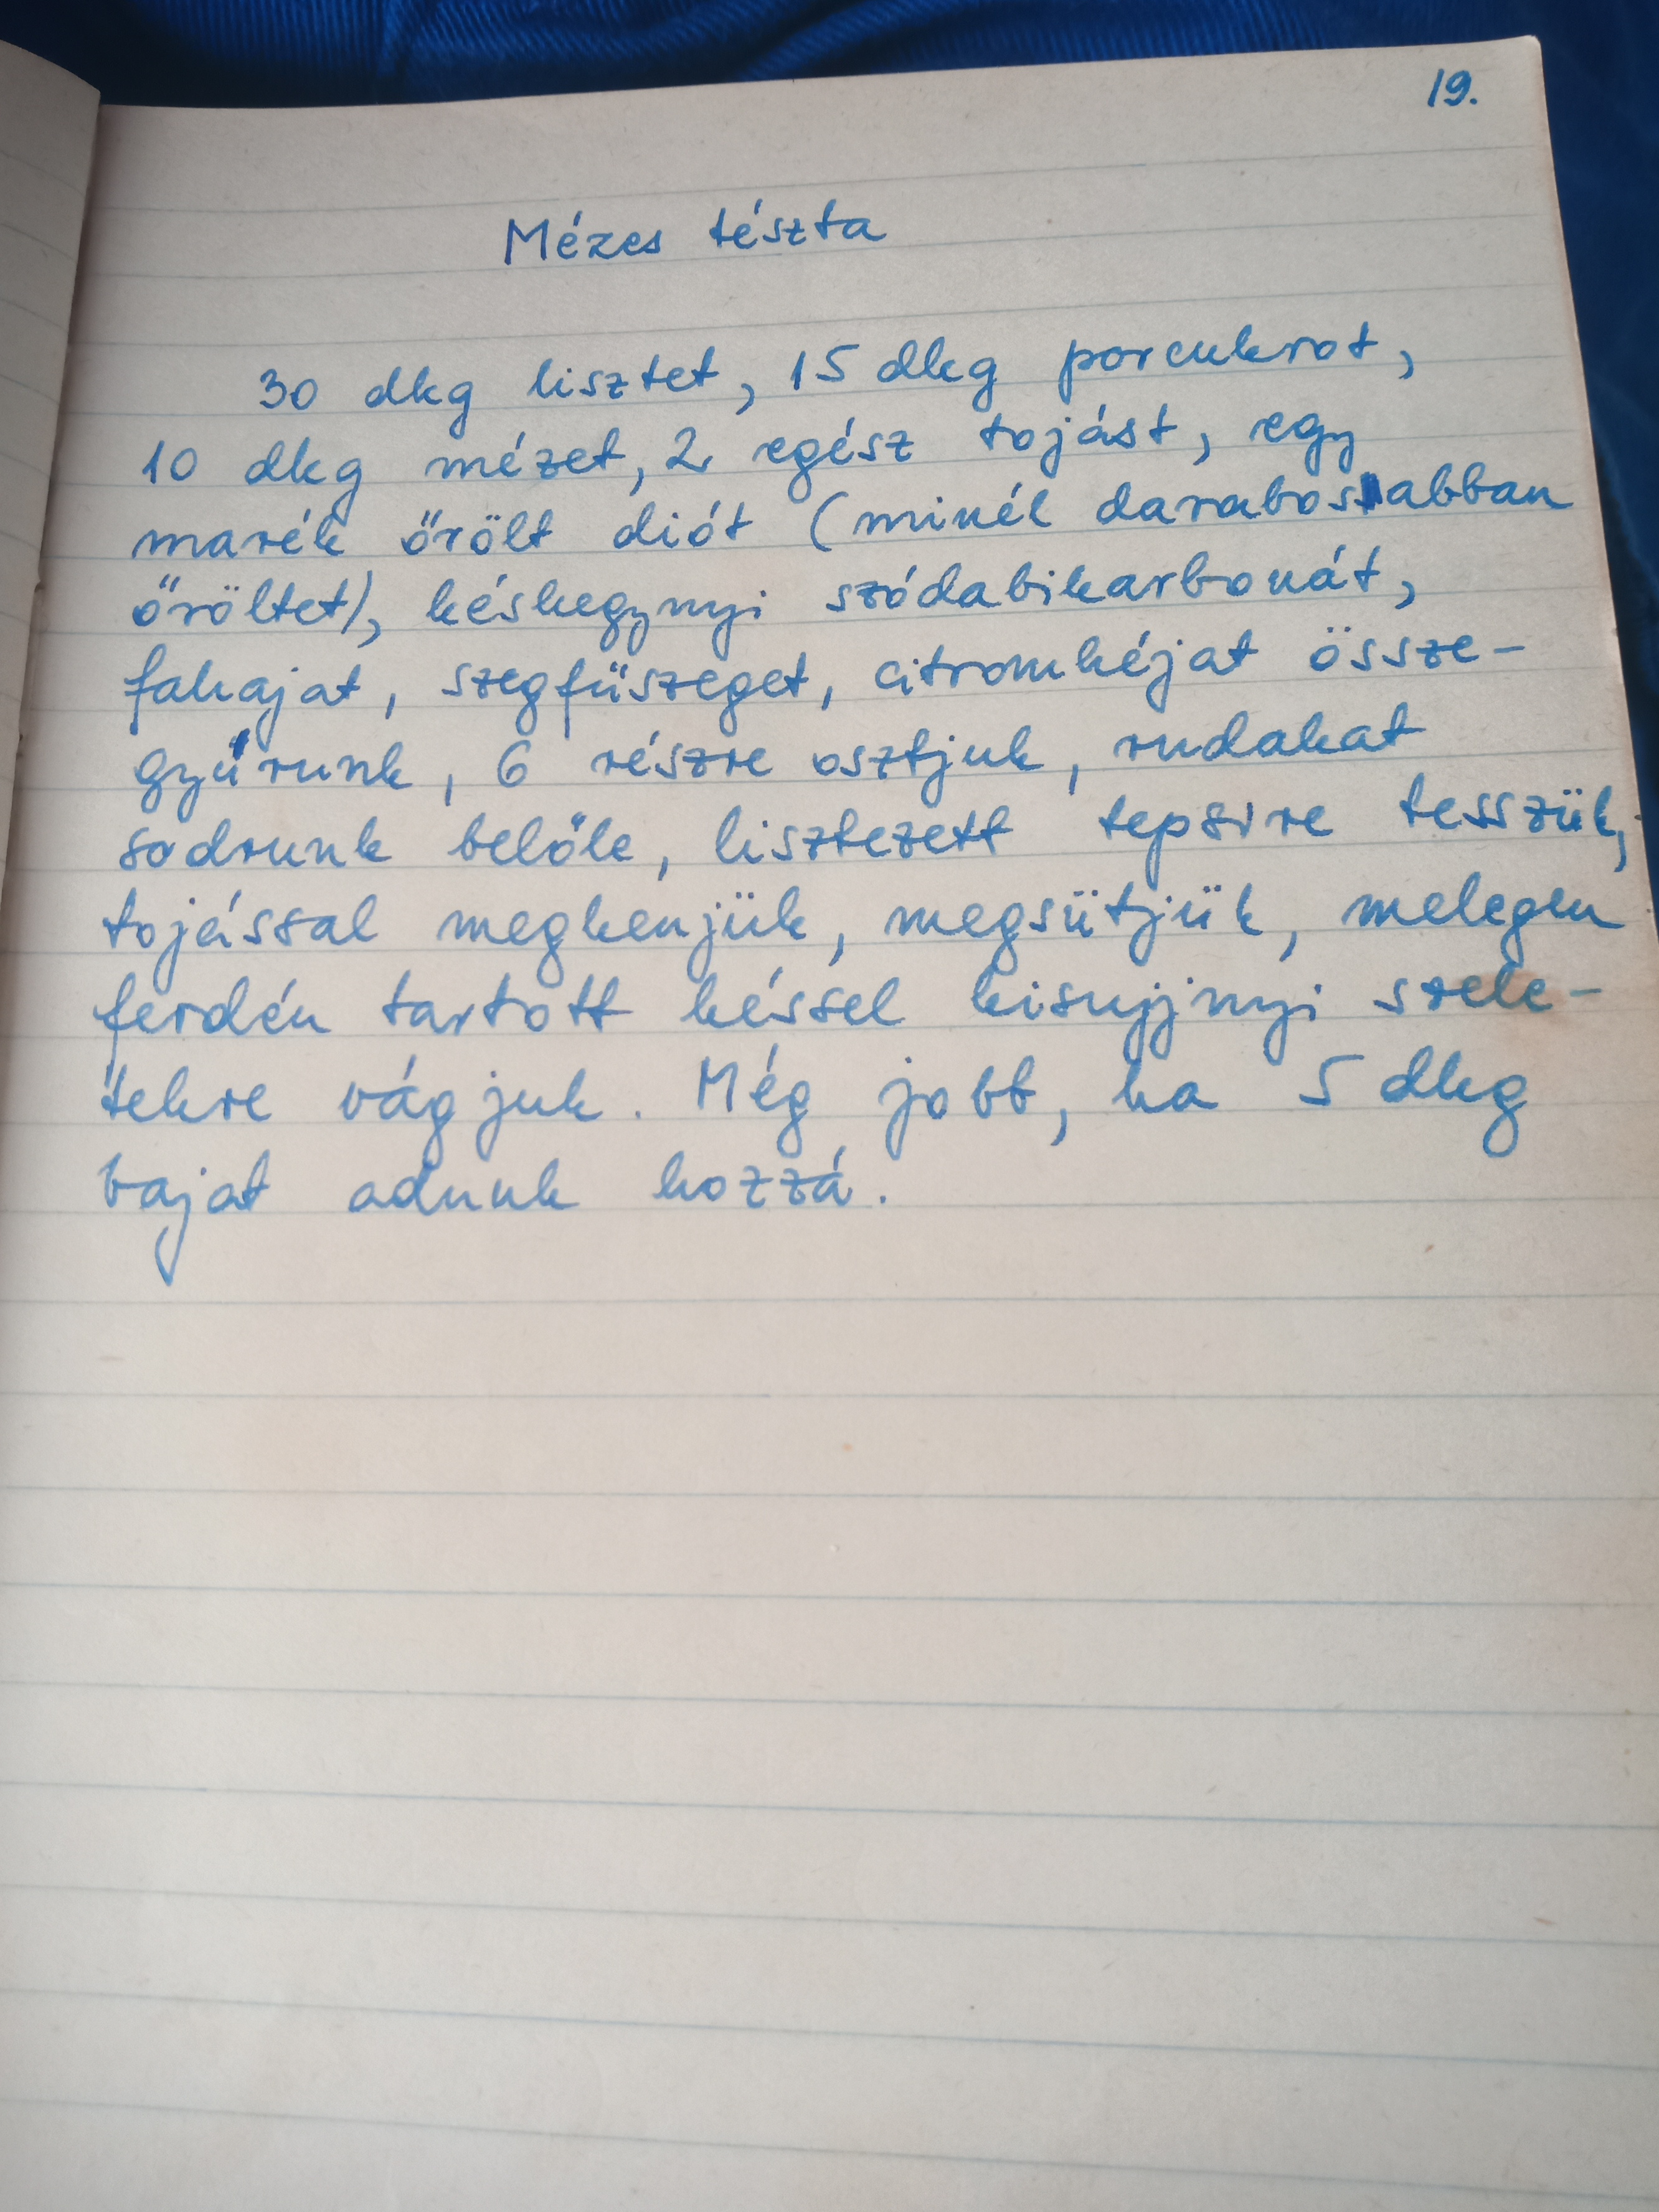 19.
Mézes tészta
30 dkg lisztet, 15 dkg porcukrot,
10 dkg mézet, 2 egész tojást, egy
marék őrölt diót (minél darabosabban
őröltet), késhegynyi szódabikarbonát,
fahajat, szegfűszeget, citromhéjat össze-
gyúrunk, 6 részre osztjuk, rudakat
sodrunk belőle, lisztezett tepsire tesszük,
tojással megkenjük, megsütjük, melegen
ferdén tartott késsel kisujjnyi szele-
tekre vágjuk. Még jobb, ha 5 dkg
vajat adunk hozzá.